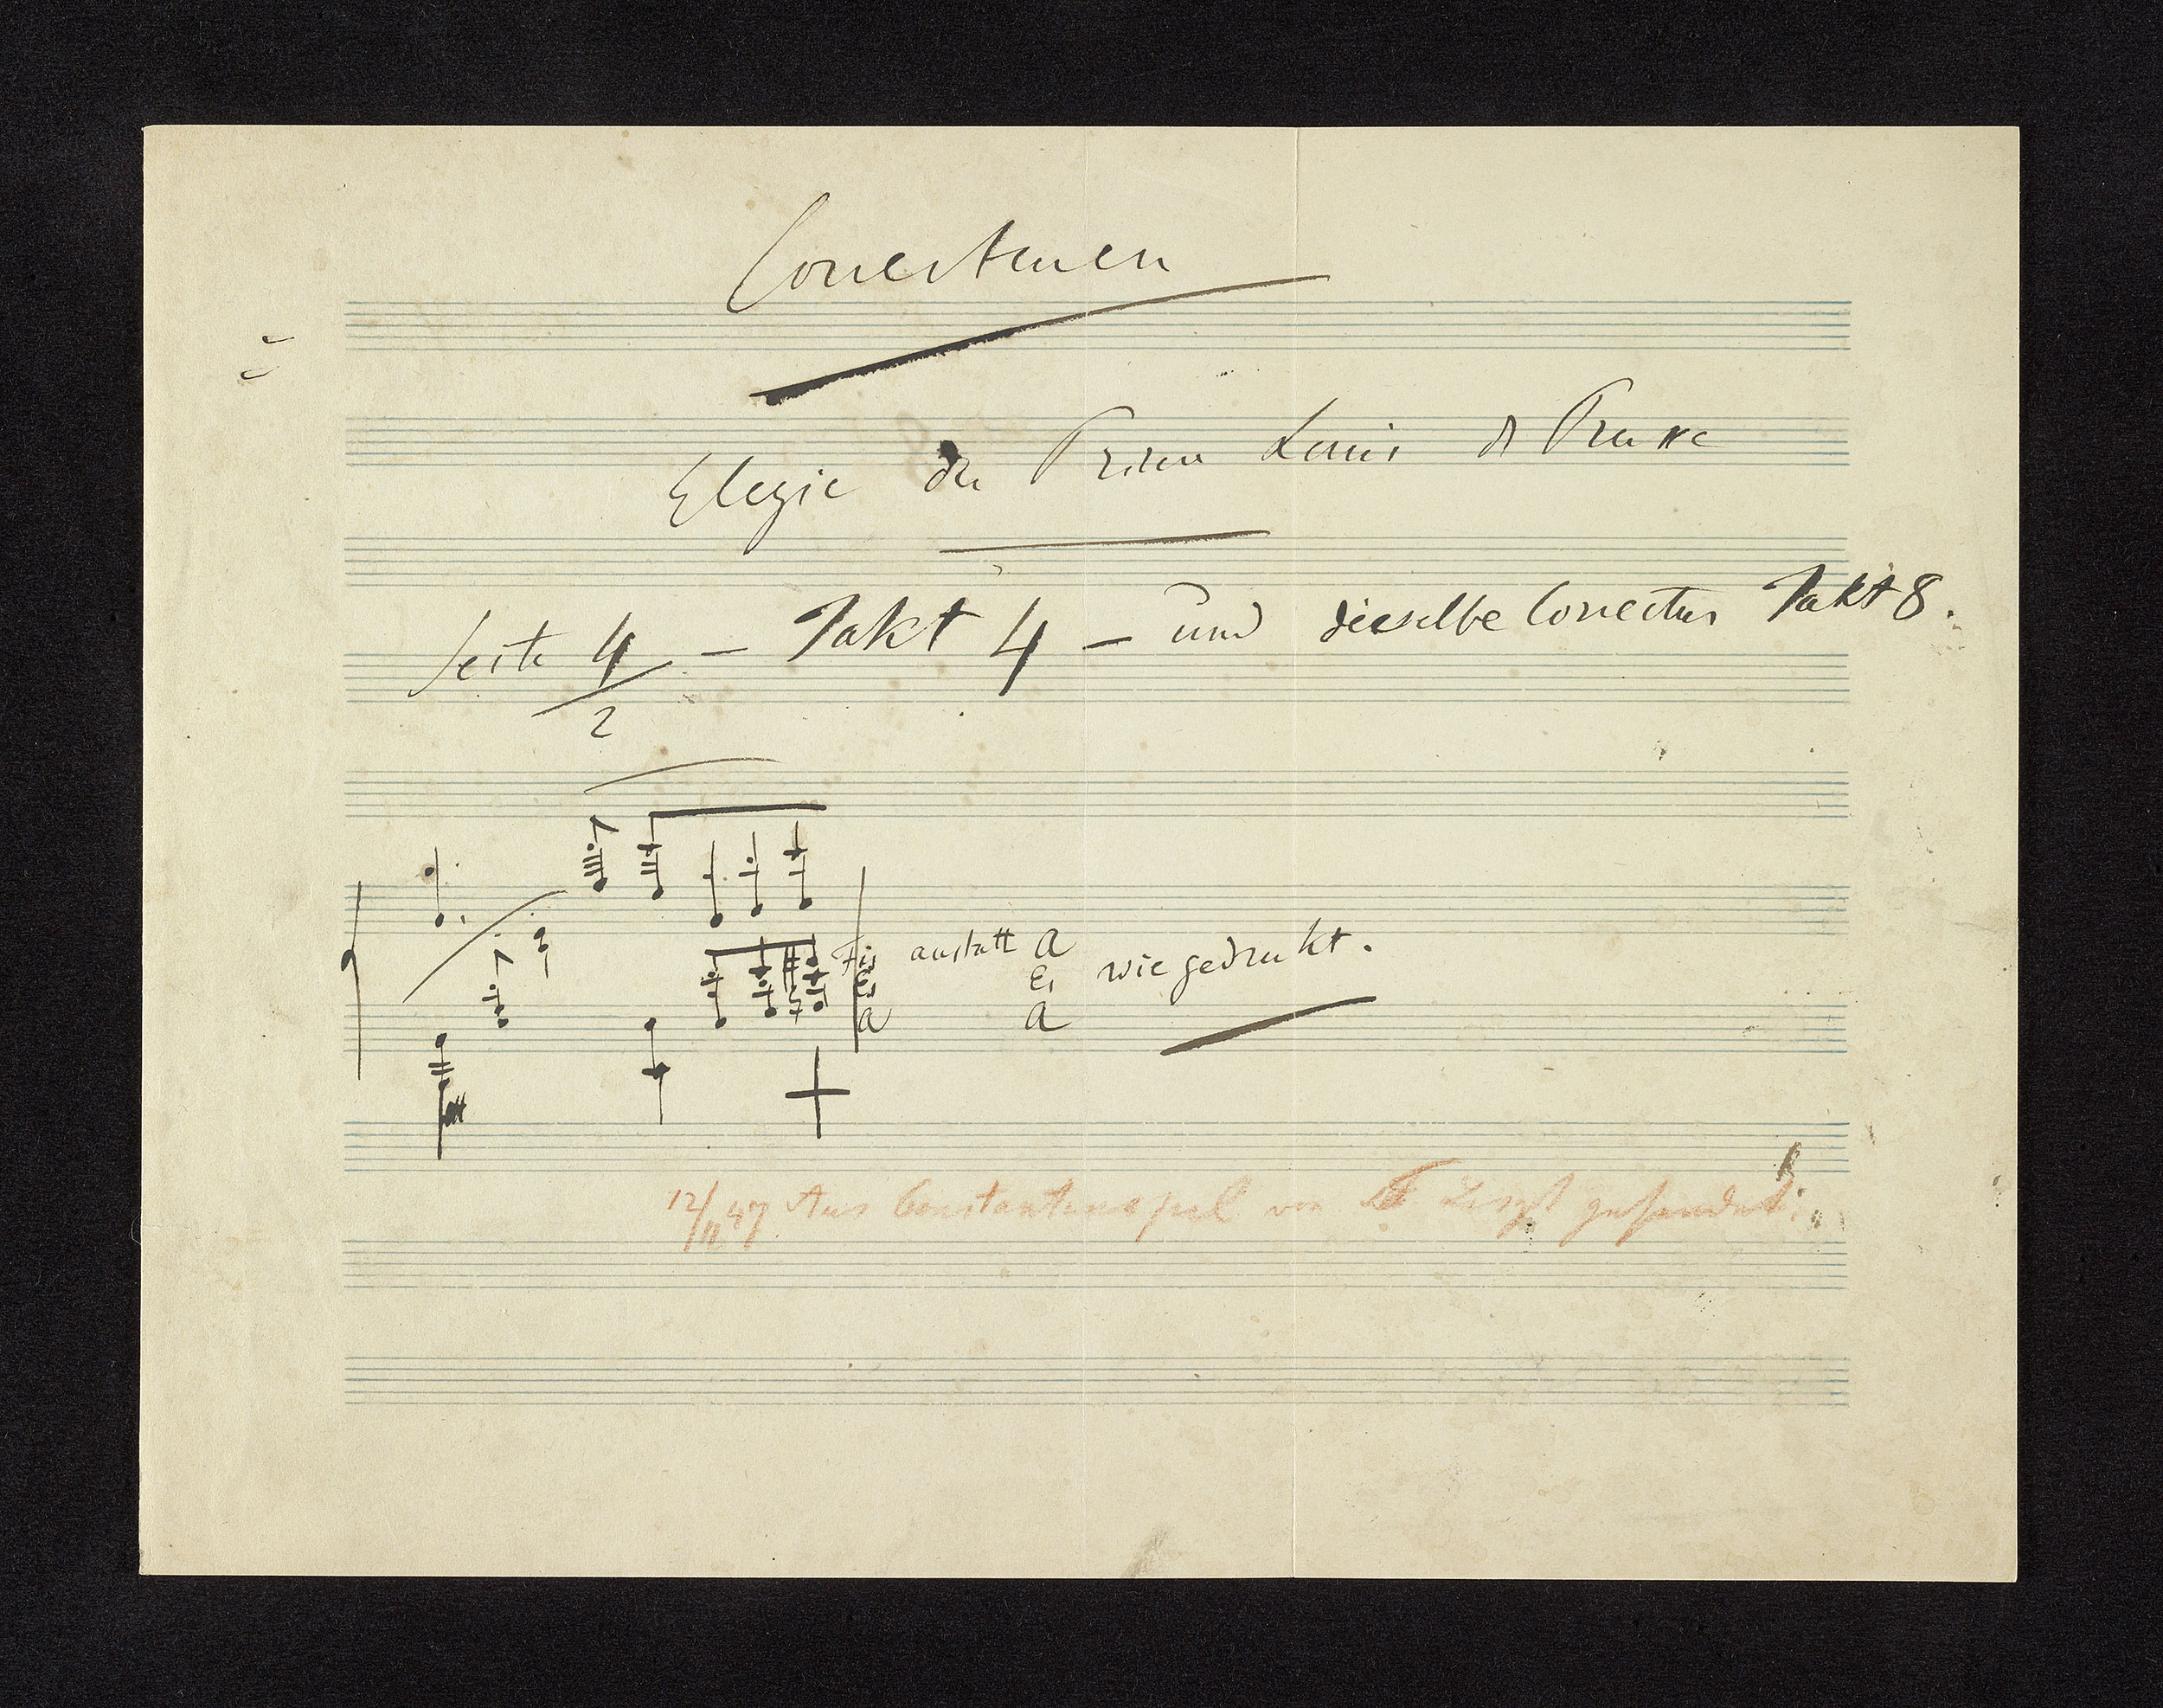 Correcturen
Elegie du Prince Louis de Prusse
Seite 4 – Takt 4 – und dieselbe Correctur Takt 8.
2
Fis anstatt A
Es Es wie gedruckt.
A A
12/11 47 Aus Constantinopel von F Liszt gesendet: